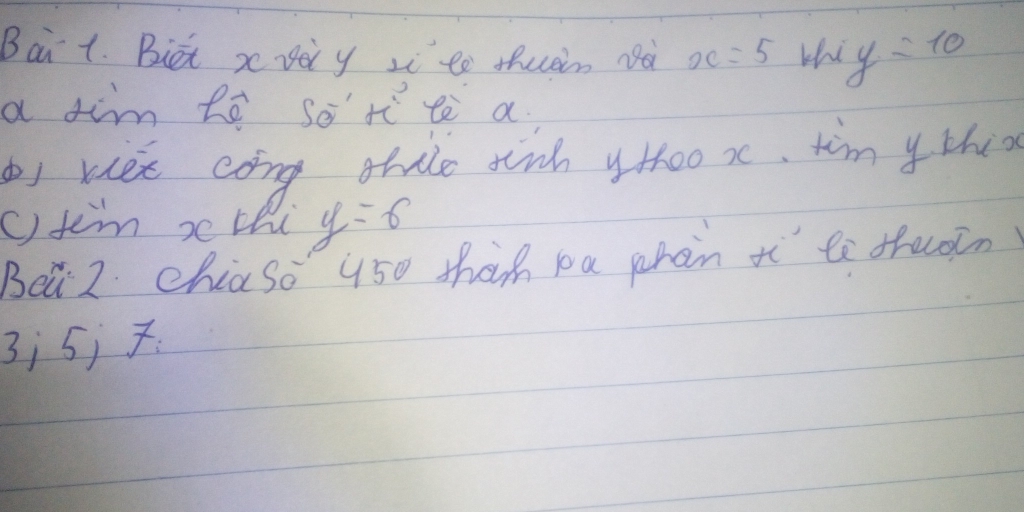 Bài 1. Biết x và y tỉ lệ thuận và x = 5 khi y = 10
a tìm hệ số tỉ lệ a.
b) viết công thức tính y theo x. tìm y khi x
c) tìm x khi y = 6
Bài 2. Chia số 450 thành ba phần tỉ lệ thuận
3; 5; 7.